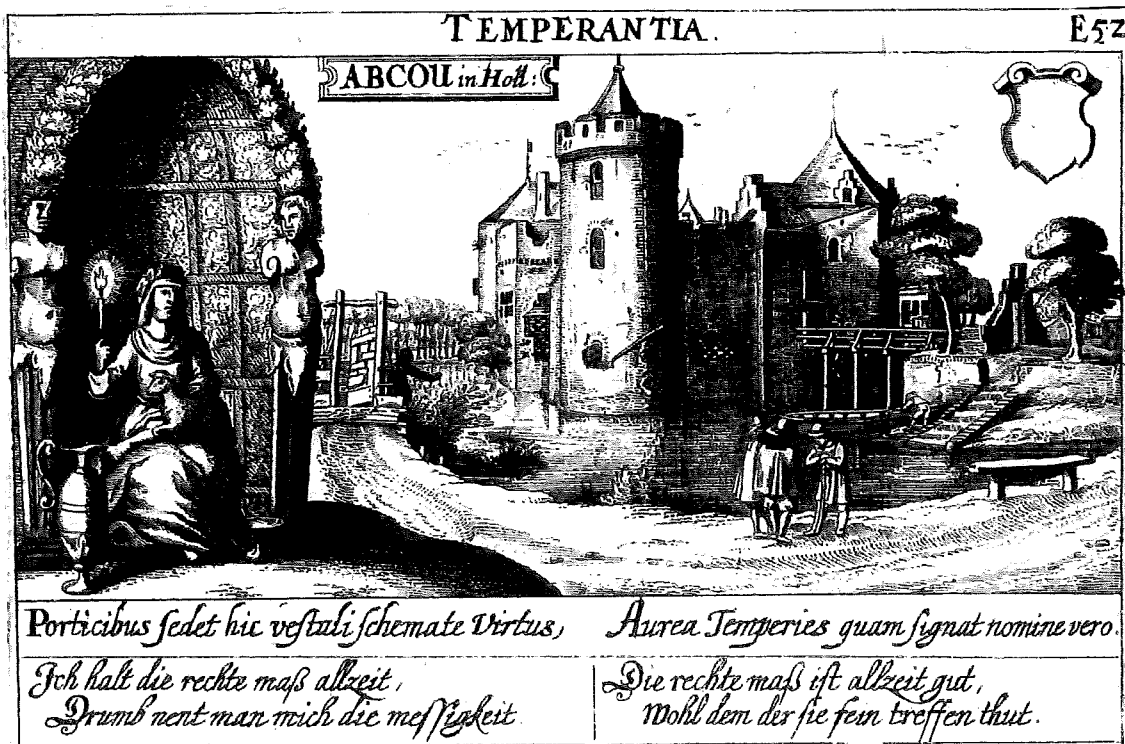 TEMPERANTIA.
E52
ABCOU in Holl:
Porticibus ſedet hic veſtali ſchemate Virtus,
Aurea Temperies quam ſignat nomine vero.
Ich halt die rechte maß allzeit,
Drumb nent man mich die meſſigkeit.
Die rechte maß iſt allzeit gut,
Wohl dem der ſie fein treffen thut.